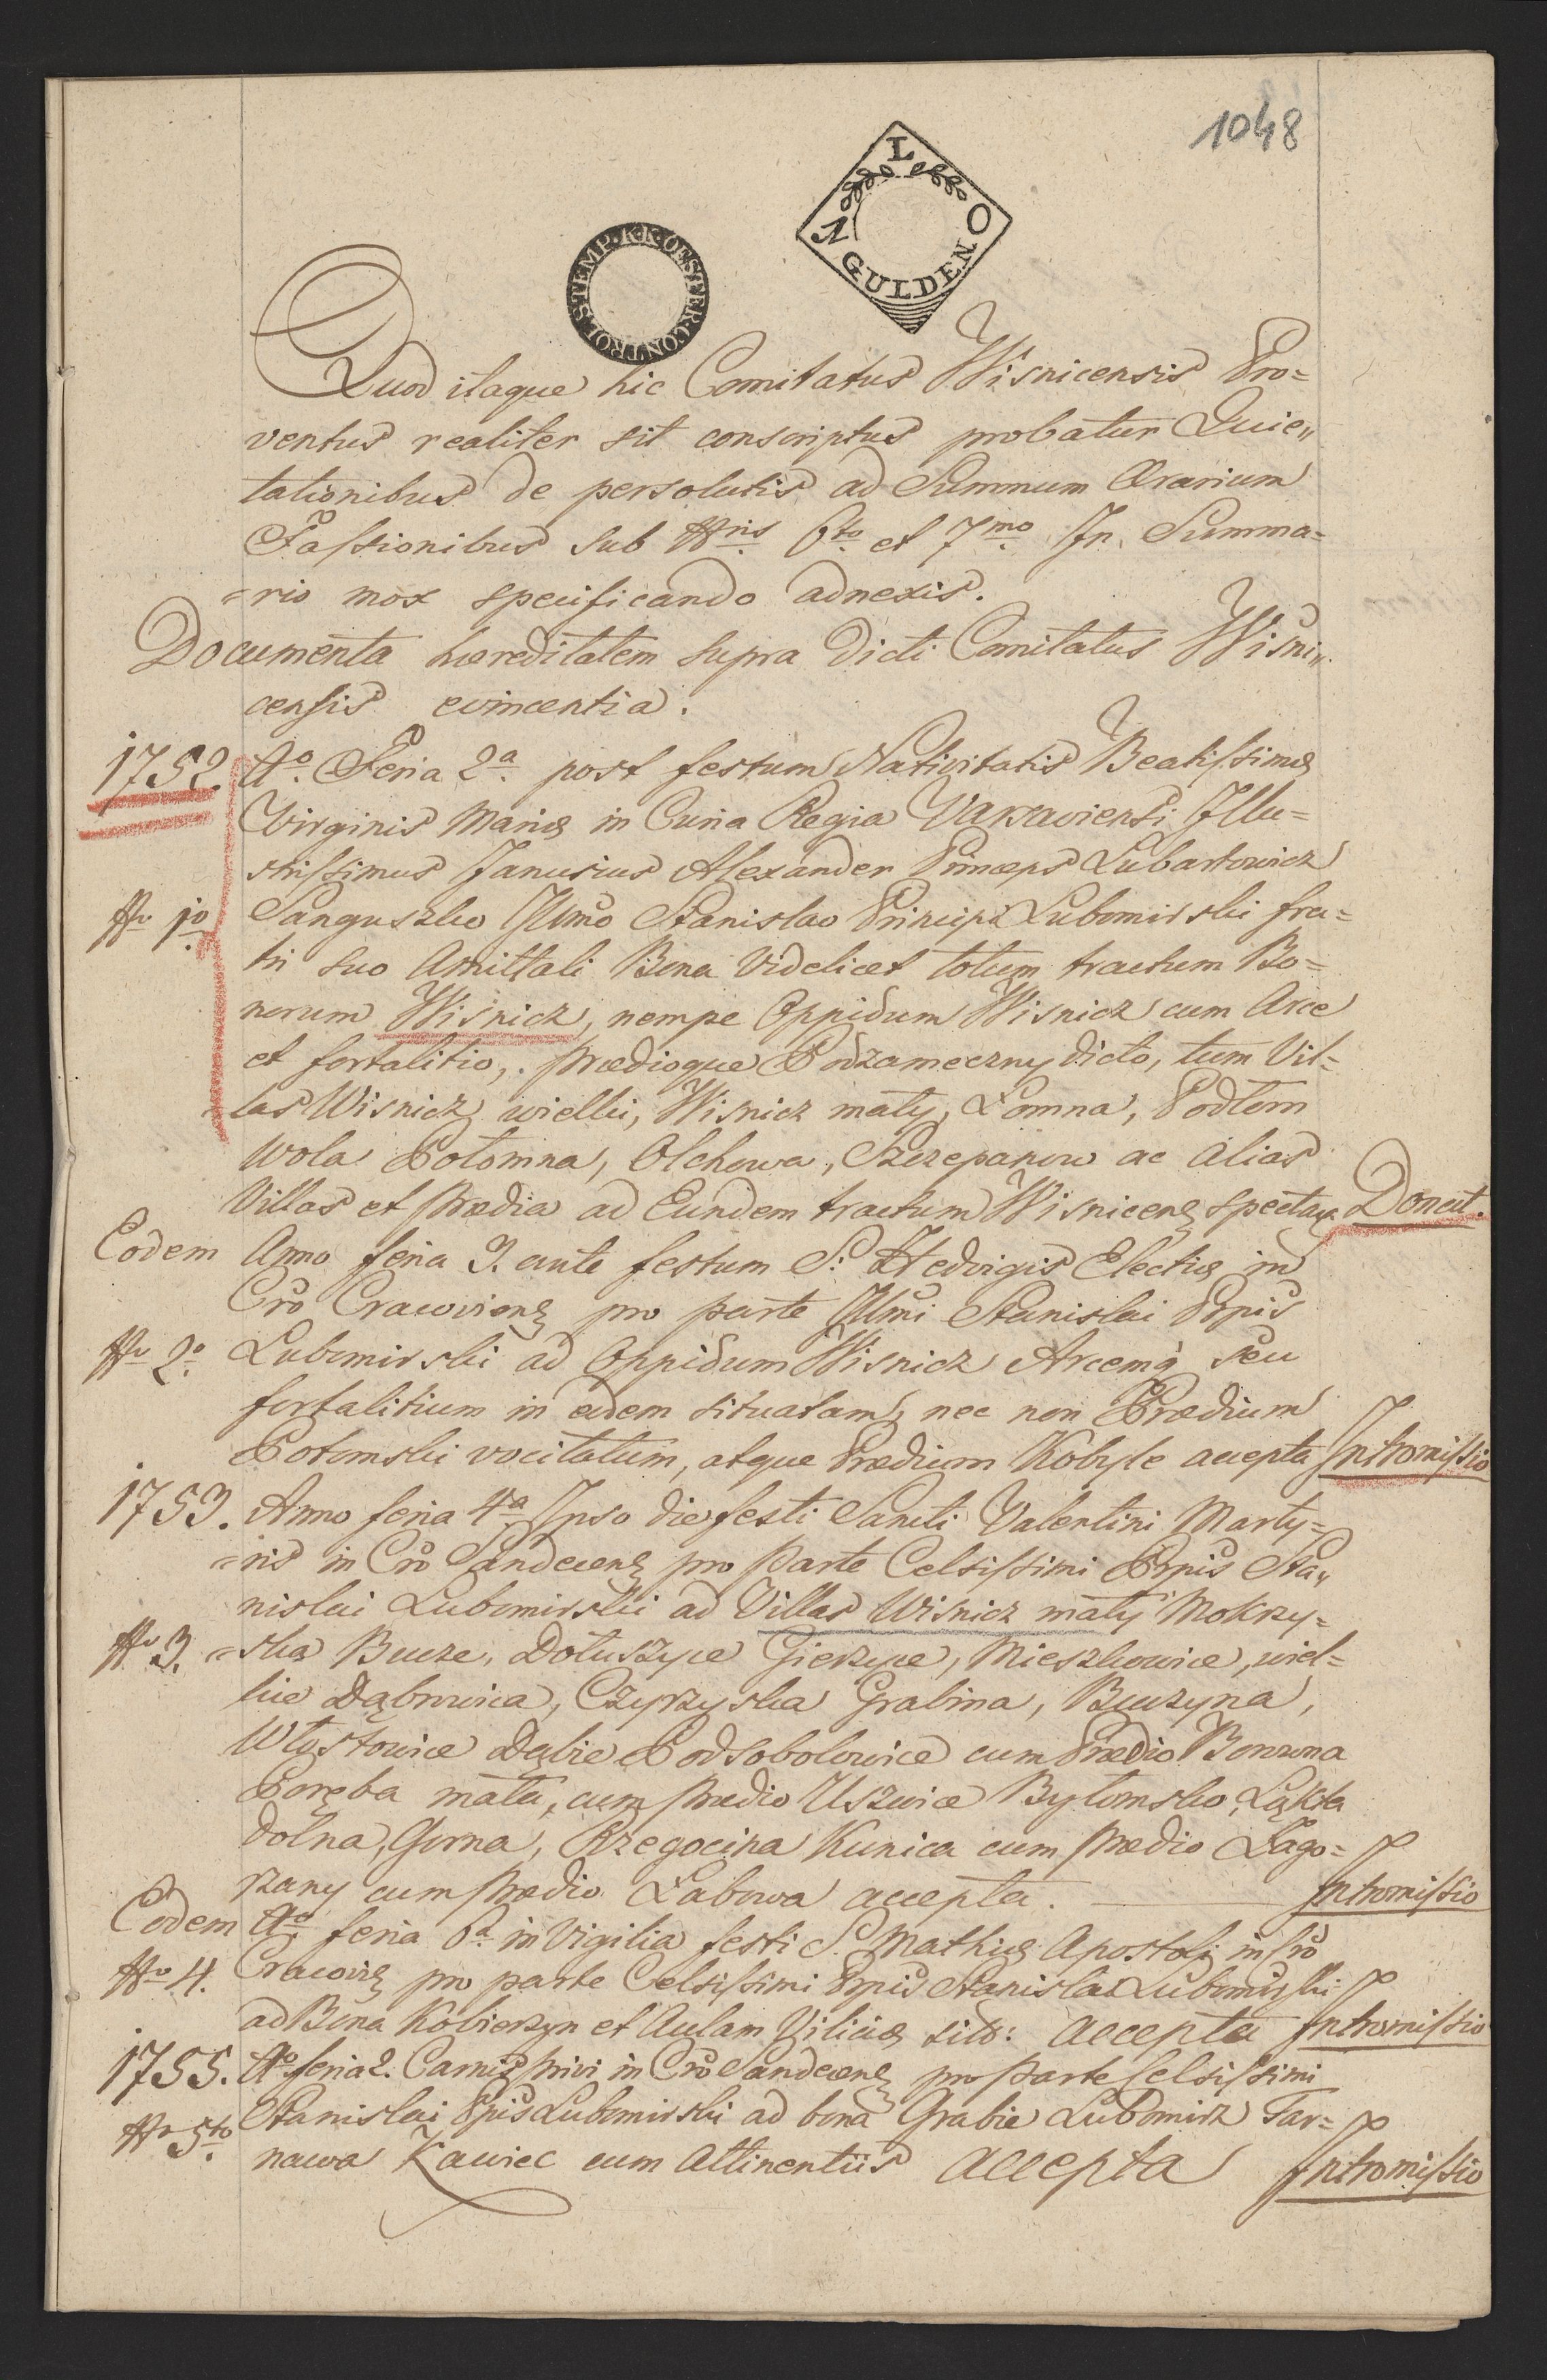 1048
L
NO
GULDEN
STEMP. K.K. OESTER. CONTROL
Quod itaque hic Comitatus Wisnicensis Pro=
ventus realiter sit conscriptus probatur Quie„
tationibus de persolutis ad Summum Ærarium
Fassionibus sub Nris 6to et 7mo In Summa=
=rio mox specificando adnexis.
Documenta hæreditatem supra Dicti Comitatus Wisni„
censis evincentia.
1752. Ao. Feria 2a post festum Nativitatis Beatissimæ
Virginis Mariæ in Curia Regia Varsaviensi Illu=
strissimus Janusius Alexander Princeps Lubartowicz
Nro 1o Sanguszko Illmo Stanislao Principi Lubomirski fra=
tri suo Amittali Bona Videlicet totum tractum Bo=
norum Wisnicz, nempe Oppidum Wisnicz cum Arce
et fortalitio, prædioque Podzameczny dicto, tum Vil=
las Wisnicz wielki, Wisnicz mały, Łomna, Podłom
Wola Połomna, Olchowa, Szczepanow ac alias
Villas et Prædia ad Eundem tractum Wisnicens spectan Donat.
Eodem Anno feria 3. ante festum S. Hedvigis Electæ in
Cro Cracoviens pro parte Illmi Stanislai Prpis
Nro 2o Lubomirski ad Oppidum Wisnicz Arcemq seu
fortalitium in eadem situatam, nec non Prædium
Połomski vocitatum, atque Prædium Kobyle accepta Intromissio
1753. Anno feria 4a Ipso die festi Sancti Valentini Marty=
=ris in Cro Sandecens pro Parte Celsissimi Prpis Sta„
nislai Lubomirski ad Villas Wisnicz mały Mokrzy=
Nro 3. =ska Bucze, Dołuszyce Gierzyce, Mieszkowice, wiel=
kie Dąbrowica, Czyrzyska Grabina, Buczyna,
Włystowice Dąbie Podsobolowice cum Prædio Borowna
Poręba mała, cum Prædio Uszwice Bytomsko, Łąkta
dolna, Gorna, Rzegocina Kunica cum Prædio Łago=
rzany cum Prædio Łabowa accepta. Intromissio
Eodem Ao feria 6a in Vigilia festi S. Mathiæ Apostoli in Cro
Nro 4. Cracovis pro parte Celsissimi Prpis Stanislai Lubomirski
ad Bona Kobierzyn et Aulam Viliciæ sit: accepta Intromissio
1755. Ao feria 2. Carnisprivi in Cro Sandecens pro Parte Celsissimi
Nro 5to Stanislai Prpis Lubomirski ad bona Grabie Lubomirz Tar=
nawa Kawiec cum attinentiis accepta Intromissio